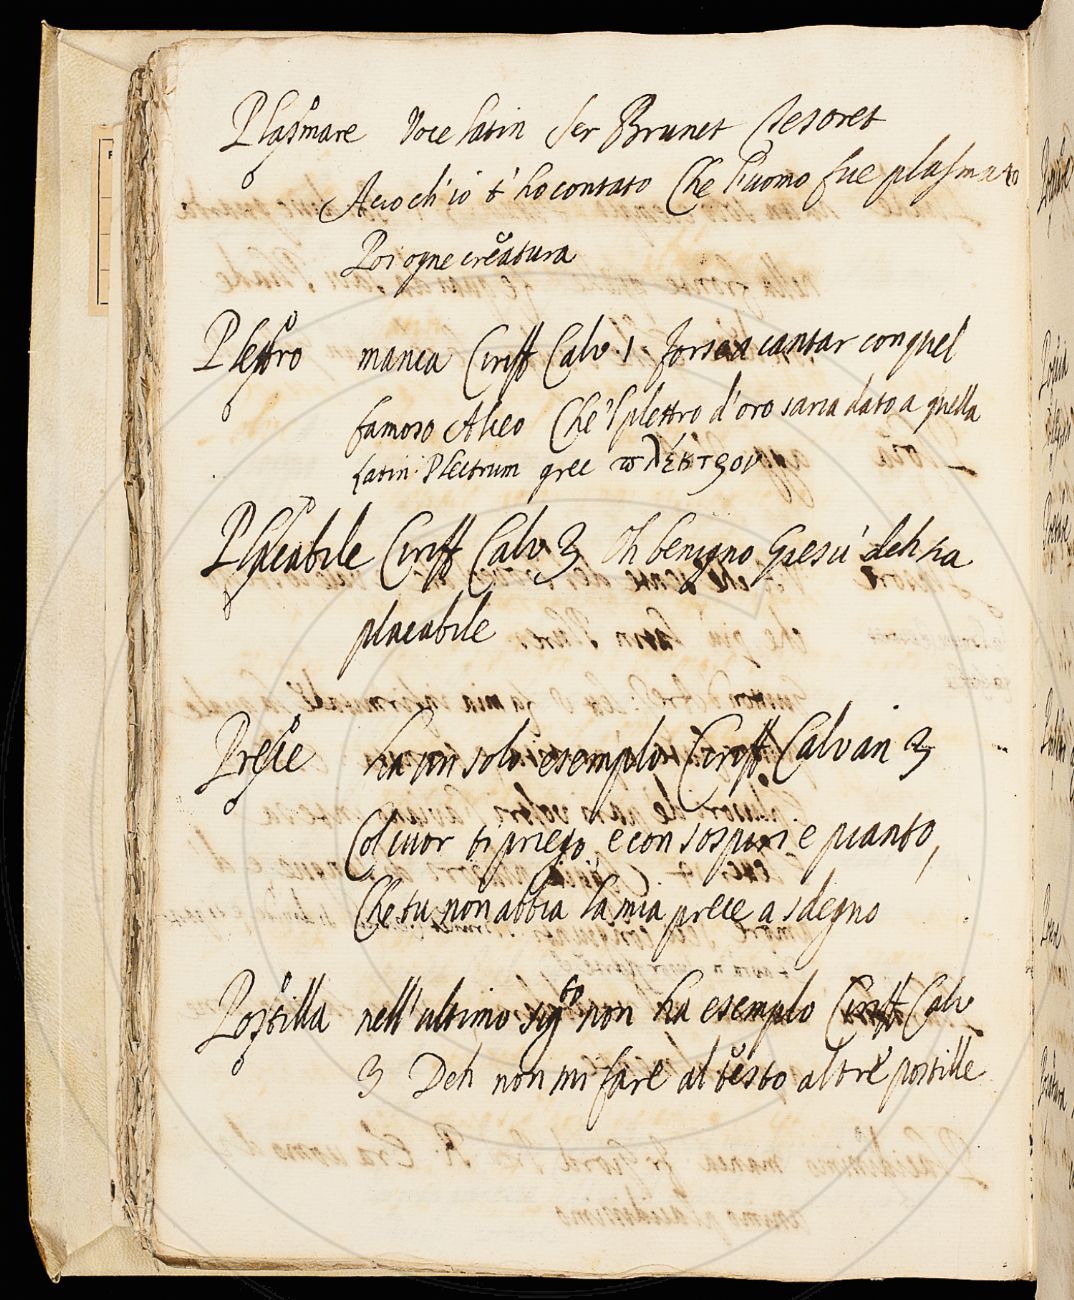 Plasmare Voce latin Ser Brunet Tesoret
Acio ch'io t'ho contato Che l'uomo fue plasmato
Poi ogne creatura
Plettro manca Ciriff Calv. 1 Forse a cantar con quel
famoso Alceo Che'l plettro d'oro saria dato a quella
Latin Plectrum grec πλέκτρον
Placabile Ciriff Calv 3 Oh benigno Giesù deh sia
placabile
Prece ha un solo esemplo Ciriff Calvan 3
Col cuor ti priego e con sospiri e pianto,
Che tu non abbia la mia prece a sdegno
Postilla nell'ultimo sigto non ha esemplo Ciriff Calv
3 Deh non mi fare al testo altre postille